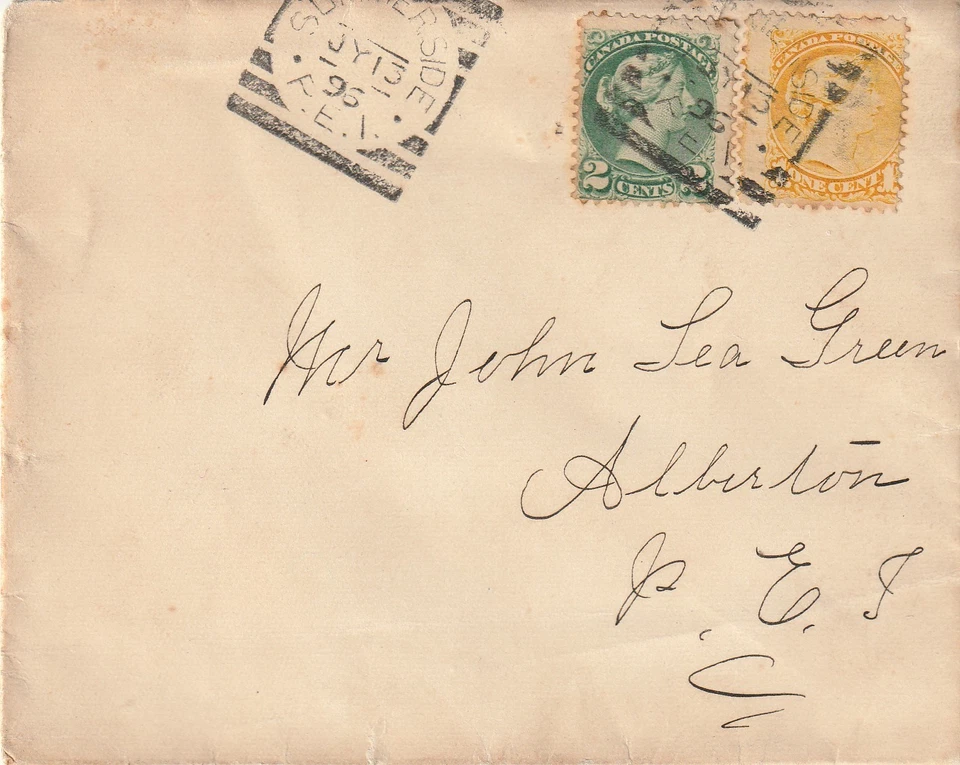 SUMMERSIDE
JY 13
96
P.E.I.
CANADA POSTAGE
2 CENTS 2
CANADA POSTAGE
ONE CENT 1
SIDE
Mr John Lea Green
Alberton
P. E. I